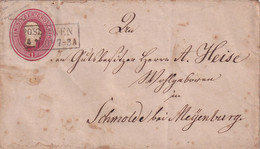 An
den Gutsbesitzer Herrn A. Heise
Wohlgeboren
in
Schmolde bei Meyenburg.